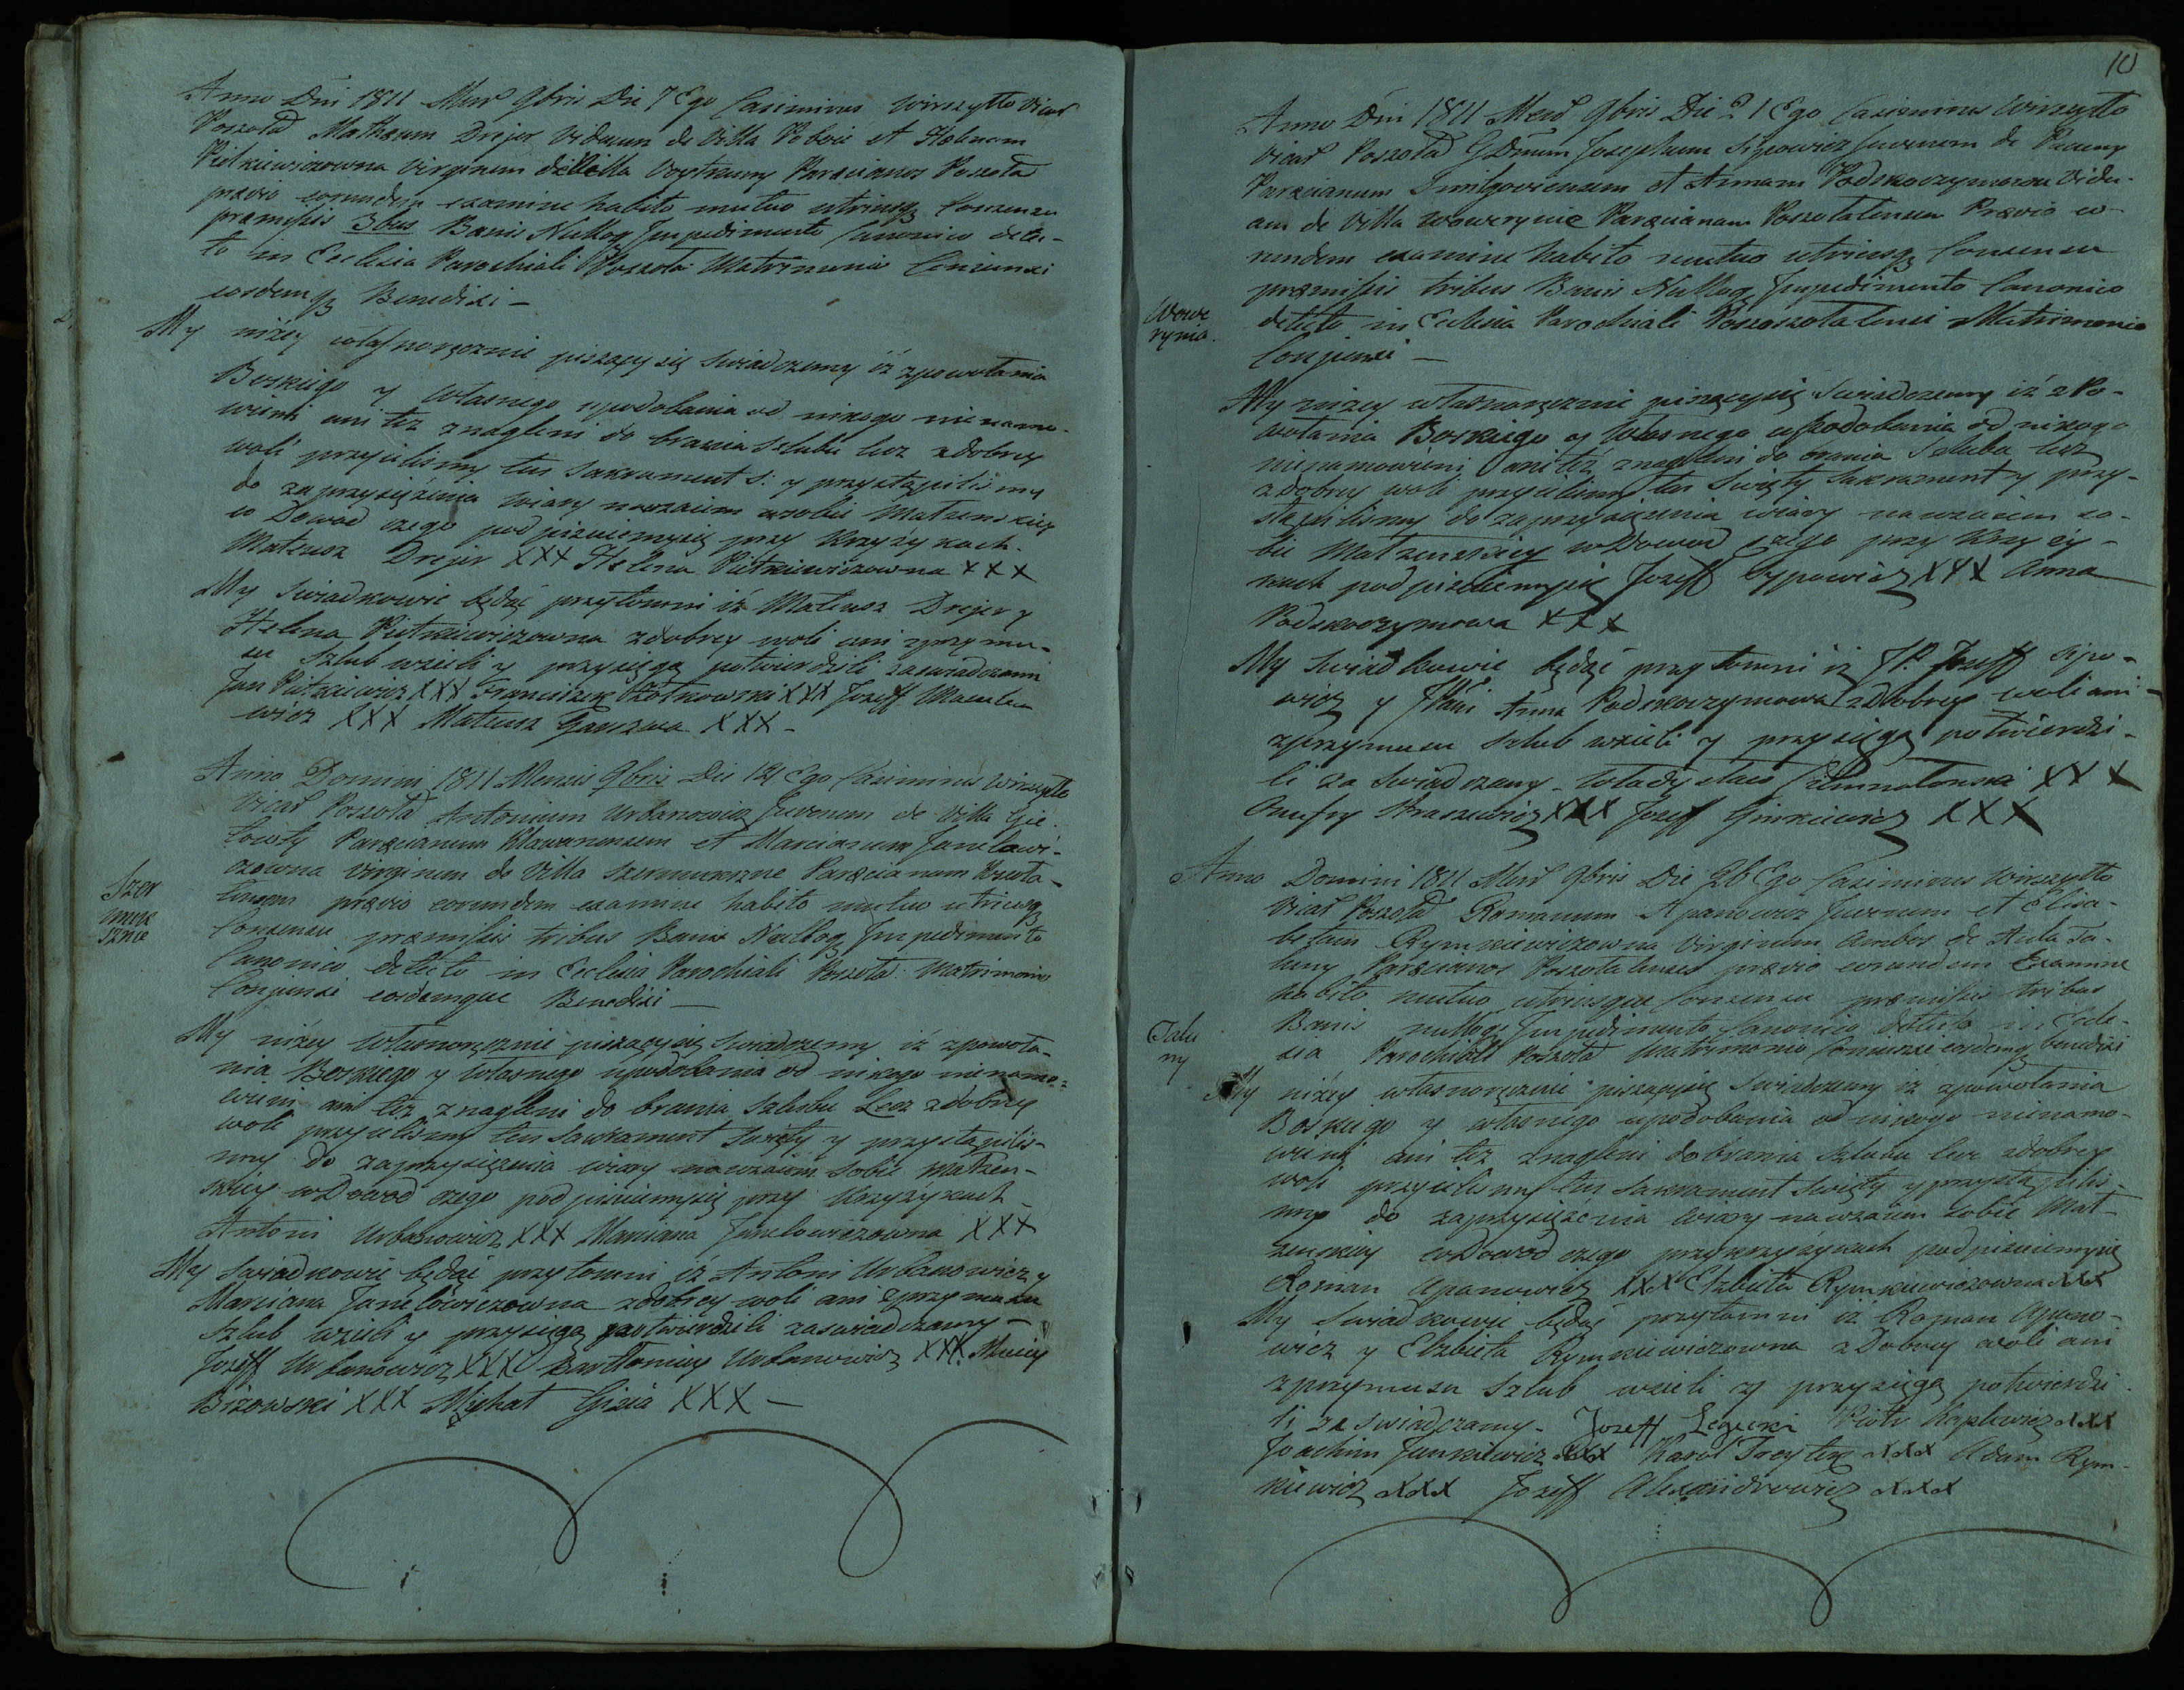 Anno Dni 1811 Mens 9bris Die 7 Ego Casimirus Wirszytto Vicar
Poszołał Matheum Drejer Viduum de Villa Poboie et Helenam
Pietkiewiczowna Virginem de Villa Parаcianos Poszoła
prævio eorundem examine habito mutuo utriusq Consensu
præmissis 3bus Banis Nulloq Impedimento Canonico detec-
to in Ecclesia Parochiali Poszoła Matrimonio Coniunxi
eosdemq Benedixi —
My niżey własnoręcznie piszący się swiadczemy iż zpowołania
Boskiego y własnego upodobania od nikogo nie namo-
wieni ani też znagleni do brania Szlubu lecz zdobrey
woli przyieliśmy ten Sakrament S: y przystąpiliśmy
do zaprzysiężenia wiary nawzaiem sobie Małzenskiey
w Dowod czego podpisuiemy się przy Krzyżykach.
Mateusz Drejer XXX Helena Pietkiewiczowna XXX
My Swiadkowie będąc przytomni iż Mateusz Drejer y
Helena Pietkiewiczowna zdobrey woli ani zprzymu-
su Szlub wzieli y przysięgą potwierdzili zaswiadczami
Jan Pietkiewicz XXX Franciszek Żółkowski XXX Jozeff
wicz XXX Mateusz XXX —
Anno Domini 1811 Mensis 9bris Die 12 Ego Casimirus Wirszytto
Vicar Poszołał Antonium Urbanowicz Juvenem de Villa Gie-
Parаcianum et Marcianam Janelowi-
czowna Virginem de Villa Parаcianam Poszoła-
Szer
musz
sznie
tensem prævio eorundem examine habito mutuo utriusq
Consensu præmissis tribus Banis Nulloq Impedimento
Canonico detecto in Ecclesia Parochiali Poszoła Matrimonio
Conjunxi eosdemque Benedixi —
My niżey własnoręcznie piszący się swiadczemy iż zpowoła-
nia Boskiego y własnego upodobania od nikogo nienamo-
wieni ani też znagleni do brania Szlubu Lecz zdobrey
woli przyieliśmy ten Sakrament Swięty y przystąpiliś-
my do zaprzysięzenia wiary nawzaiem sobie małzen-
skiey w Dowod czego podpisuiemy się przy Krzyżykach
Antoni Urbanowicz XXX Marciana Janelowiczowna XXX
My Swiadkowie będąc przytomni iż Antoni Urbanowicz y
Marciana Janelowiczowna zdobrey woli ani zprzymusu
Szlub wzieli y przysięgą potwierdzili zaswiadczamy —
Jozeff Urbanowicz XXX Bartłomiey Urbanowicz XXX Maciey
Bizowski XXX Michał XXX —
10
Anno Dni 1811 Mens 9bris Die 21 Ego Casimirus Wirszytto
Vicar Poszołał GDnum Josephum Sypowicz Juvenem de
Parаcianum et Annam Podskoczymowa Vidu-
am de Villa Wowerynie Parаcianam Poszołatensem Prævio eo-
rundem examine habito mutuo utriusq Consensu
præmissis tribus Banis Nulloq Impedimento Canonico
Wowe
rynia.
detecto in Ecclesia Parochiali Matrimonio
Conjunxi —
My niżey własnoręcznie piszący się Swiadczemy iż z Po-
wołania Boskiego y Własnego upodobania od nikogo
nienamowieni ani też znagleni do brania Szluba lecz
zdobrey woli przyieliśmy ten Swięty Sakrament y przy-
stąpiliśmy do zaprzysięzenia wiary nawzaiem so-
bie Małzenskiey w Dowod czego przy Krzyży-
kach podpisuiemy się Jozeff Sypowicz XXX Anna
Podskoczymowa XXX
My Swiadkowie będąc przytomni iż JP. Jozeff Sipo-
wicz y JPani Anna Podskoczymowa zdobrey woli ani
zprzymusu Szlub wzieli y przysięgą potwierdzi-
li za Swiadczamy. Władysław XXX
Onufry Straszewicz XXX Jozeff Ginkiewicz XXX
Anno Domini 1811 Mens 9bris Die 26 Ego Casimirus Wirszytto
Vicar Poszołał Romanum Apanowicz Juvenem et Elisa-
betam Rymkiewiczowna Virginem Ambos de Aula Ta-
luny Parаcianos Poszołatenses prævio eorundem Examine
habito mutuo utriusque Consensu præmissis tribus
Talu
ny
Banis nulloq Impedimento Canonico detecto in Ecle-
sia Parochiali Poszoła Matrymonio Coniunxi eosdemq benedixi
My niżey własnoręcznie piszący się swiadczemy iż zpowołania
Boskiego y własnego upodobania od nikogo nienamo-
wieni ani też znagleni do brania Szlubu lecz zdobrey
woli przyieliśmy ten Sakrament Swięty y przystąpiliś-
my do zaprzysięzenia wiary nawzaiem sobie Mał-
zenskiey w Dowod czego przy krzyżykach podpisuiemy się
Roman Apanowicz XXX Elzbieta Rymkiewiczowna XXX
My Swiadkowie będąc przytomni iż Roman Apano-
wicz y Elzbieta Rymkiewiczowna zDobrey woli ani
zprzymusu Szlub wzieli y przysięgą potwierdzi-
li zaswiadczamy. Jozeff Legucki Piotr XXX
Joachim Junkiewicz XXX Karol XXX Adam Rym-
kiewicz XXX Jozeff Alexandrowicz XXX